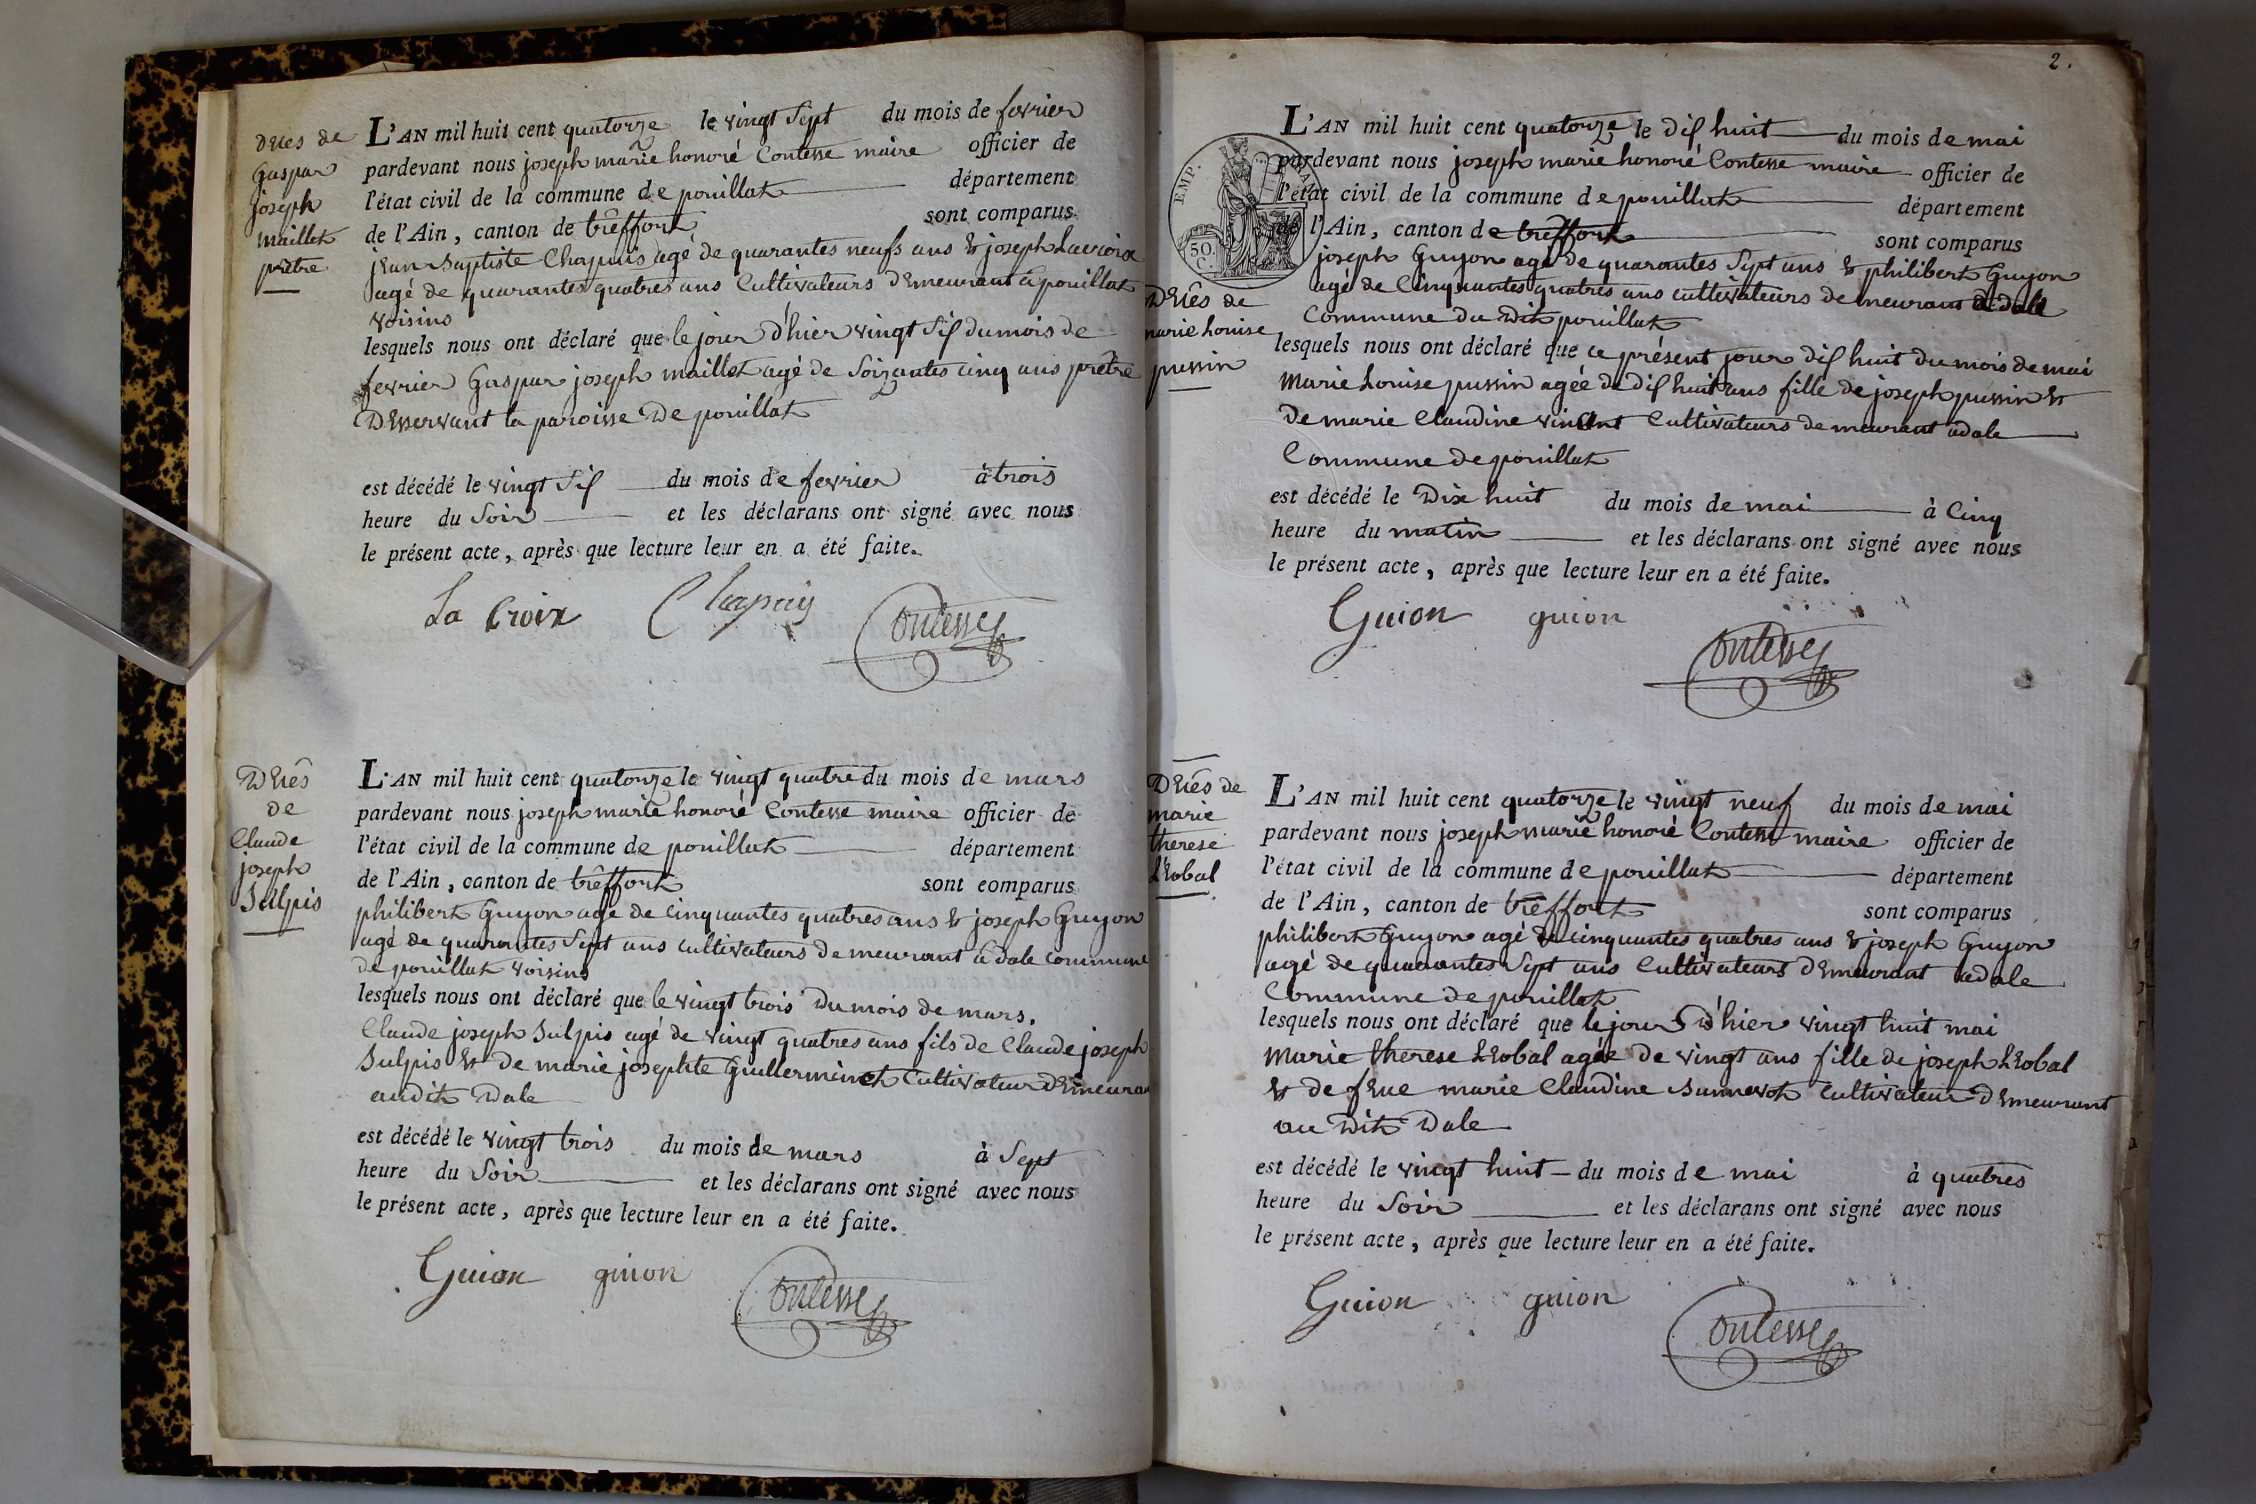 Décès de
Gaspar
joseph
maillet
prêtre
L'AN mil huit cent quatorze le vingt Sept du mois de fevrier
pardevant nous joseph marie honoré Contesse maire officier de
l'état civil de la commune de pouillat département
de l'Ain, canton de trêffort sont comparus
jean Baptiste Chapuis agé de quarantes neufs ans & joseph Lacroix
agé de quarantes quatres ans Cultivateurs demeurant a pouillat
voisins
lesquels nous ont déclaré que le jour d'hier vingt Six du mois de
fevrier Gaspar joseph maillet agé de Soixantes cinq ans prêtre
Desservant la paroisse De pouillat
est décédé le vingt Six du mois de fevrier à trois
heure du Soir et les déclarans ont signé avec nous
le présent acte, après que lecture leur en a été faite.
La Croix Chapuis Contesse
Décès
de
Claude
joseph
Sulpis
L'AN mil huit cent quatorze le vingt quatre du mois de mars
pardevant nous joseph marie honoré Contesse maire officier de
l'état civil de la commune de pouillat département
de l'Ain, canton de trêffort sont comparus
philibert Guyon agé de cinquantes quatres ans & joseph Guyon
agé de quarantes Sept ans cultivateurs demeurant a dale commune
de pouillat voisins
lesquels nous ont déclaré que le vingt trois du mois de mars.
Claude joseph Sulpis agé de vingt quatres ans fils de Claude joseph
Sulpis & de marie josephte Guillerminet Cultivateur Demeurant
audit Dale
est décédé le vingt trois du mois de mars à Sept
heure du Soir et les déclarans ont signé avec nous
le présent acte, après que lecture leur en a été faite.
Guion guion Contesse
2.
EMP.
50
C.
Décês de
marie Louise
pussin
L'AN mil huit cent quatorze le dix huit du mois de mai
pardevant nous joseph marie honoré Contesse maire officier de
l'état civil de la commune de pouillat département
de l'Ain, canton de trêffort sont comparus
joseph Guyon agé de quarantes Sept ans & philibert Guyon
agé de Cinquantes quatres ans cultivateurs demeurant a dale
Commune du Dit pouillat
lesquels nous ont déclaré que ce présent jour dix huit du mois de mai
Marie Louise pussin agée de dix huit ans fille de joseph pussin &
de marie Claudine vincent Cultivateurs demeurant a dale
Commune de pouillat
est décédé le Dix huit du mois de mai à Cinq
heure du matin et les déclarans ont signé avec nous
le présent acte, après que lecture leur en a été faite.
Guion guion Contesse
Décês de
marie
therese
L'Eobal
L'AN mil huit cent quatorze le vingt neuf du mois de mai
pardevant nous joseph marie honoré Contesse maire officier de
l'état civil de la commune de pouillat département
de l'Ain, canton de trêffort sont comparus
philibert Guyon agé de cinquantes quatres ans & joseph Guyon
agé de quarantes Sept ans Cultivateurs demeurant a dale
Commune de pouillat
lesquels nous ont déclaré que le jour d'hier vingt huit mai
Marie therese L'Eobal agée de vingt ans fille de joseph L'Eobal
& de feue marie Claudine Cultivateur Demeurant
au Dit Dale
est décédé le vingt huit du mois de mai à quatres
heure du Soir et les déclarans ont signé avec nous
le présent acte, après que lecture leur en a été faite.
Guion guion Contesse